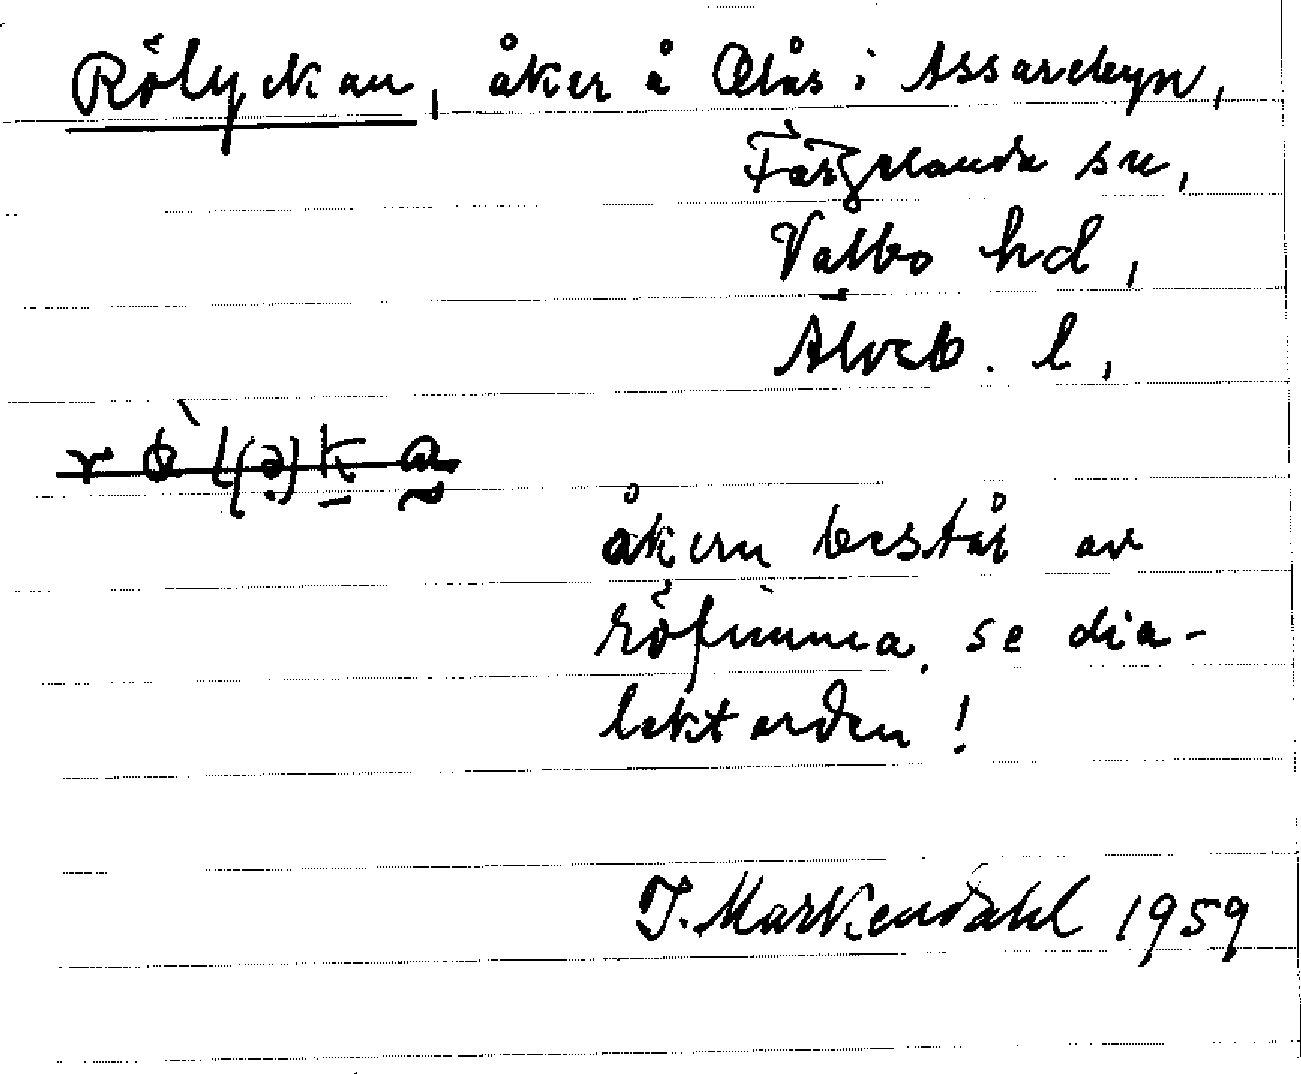 Rölyckan, åker å Olås i Assarebyn,
Färgelanda sn,
Valbo hd,
Älvsb. l,
åkern består av
röfimma, se dia-
lektorden!
J. Markendahl 1959